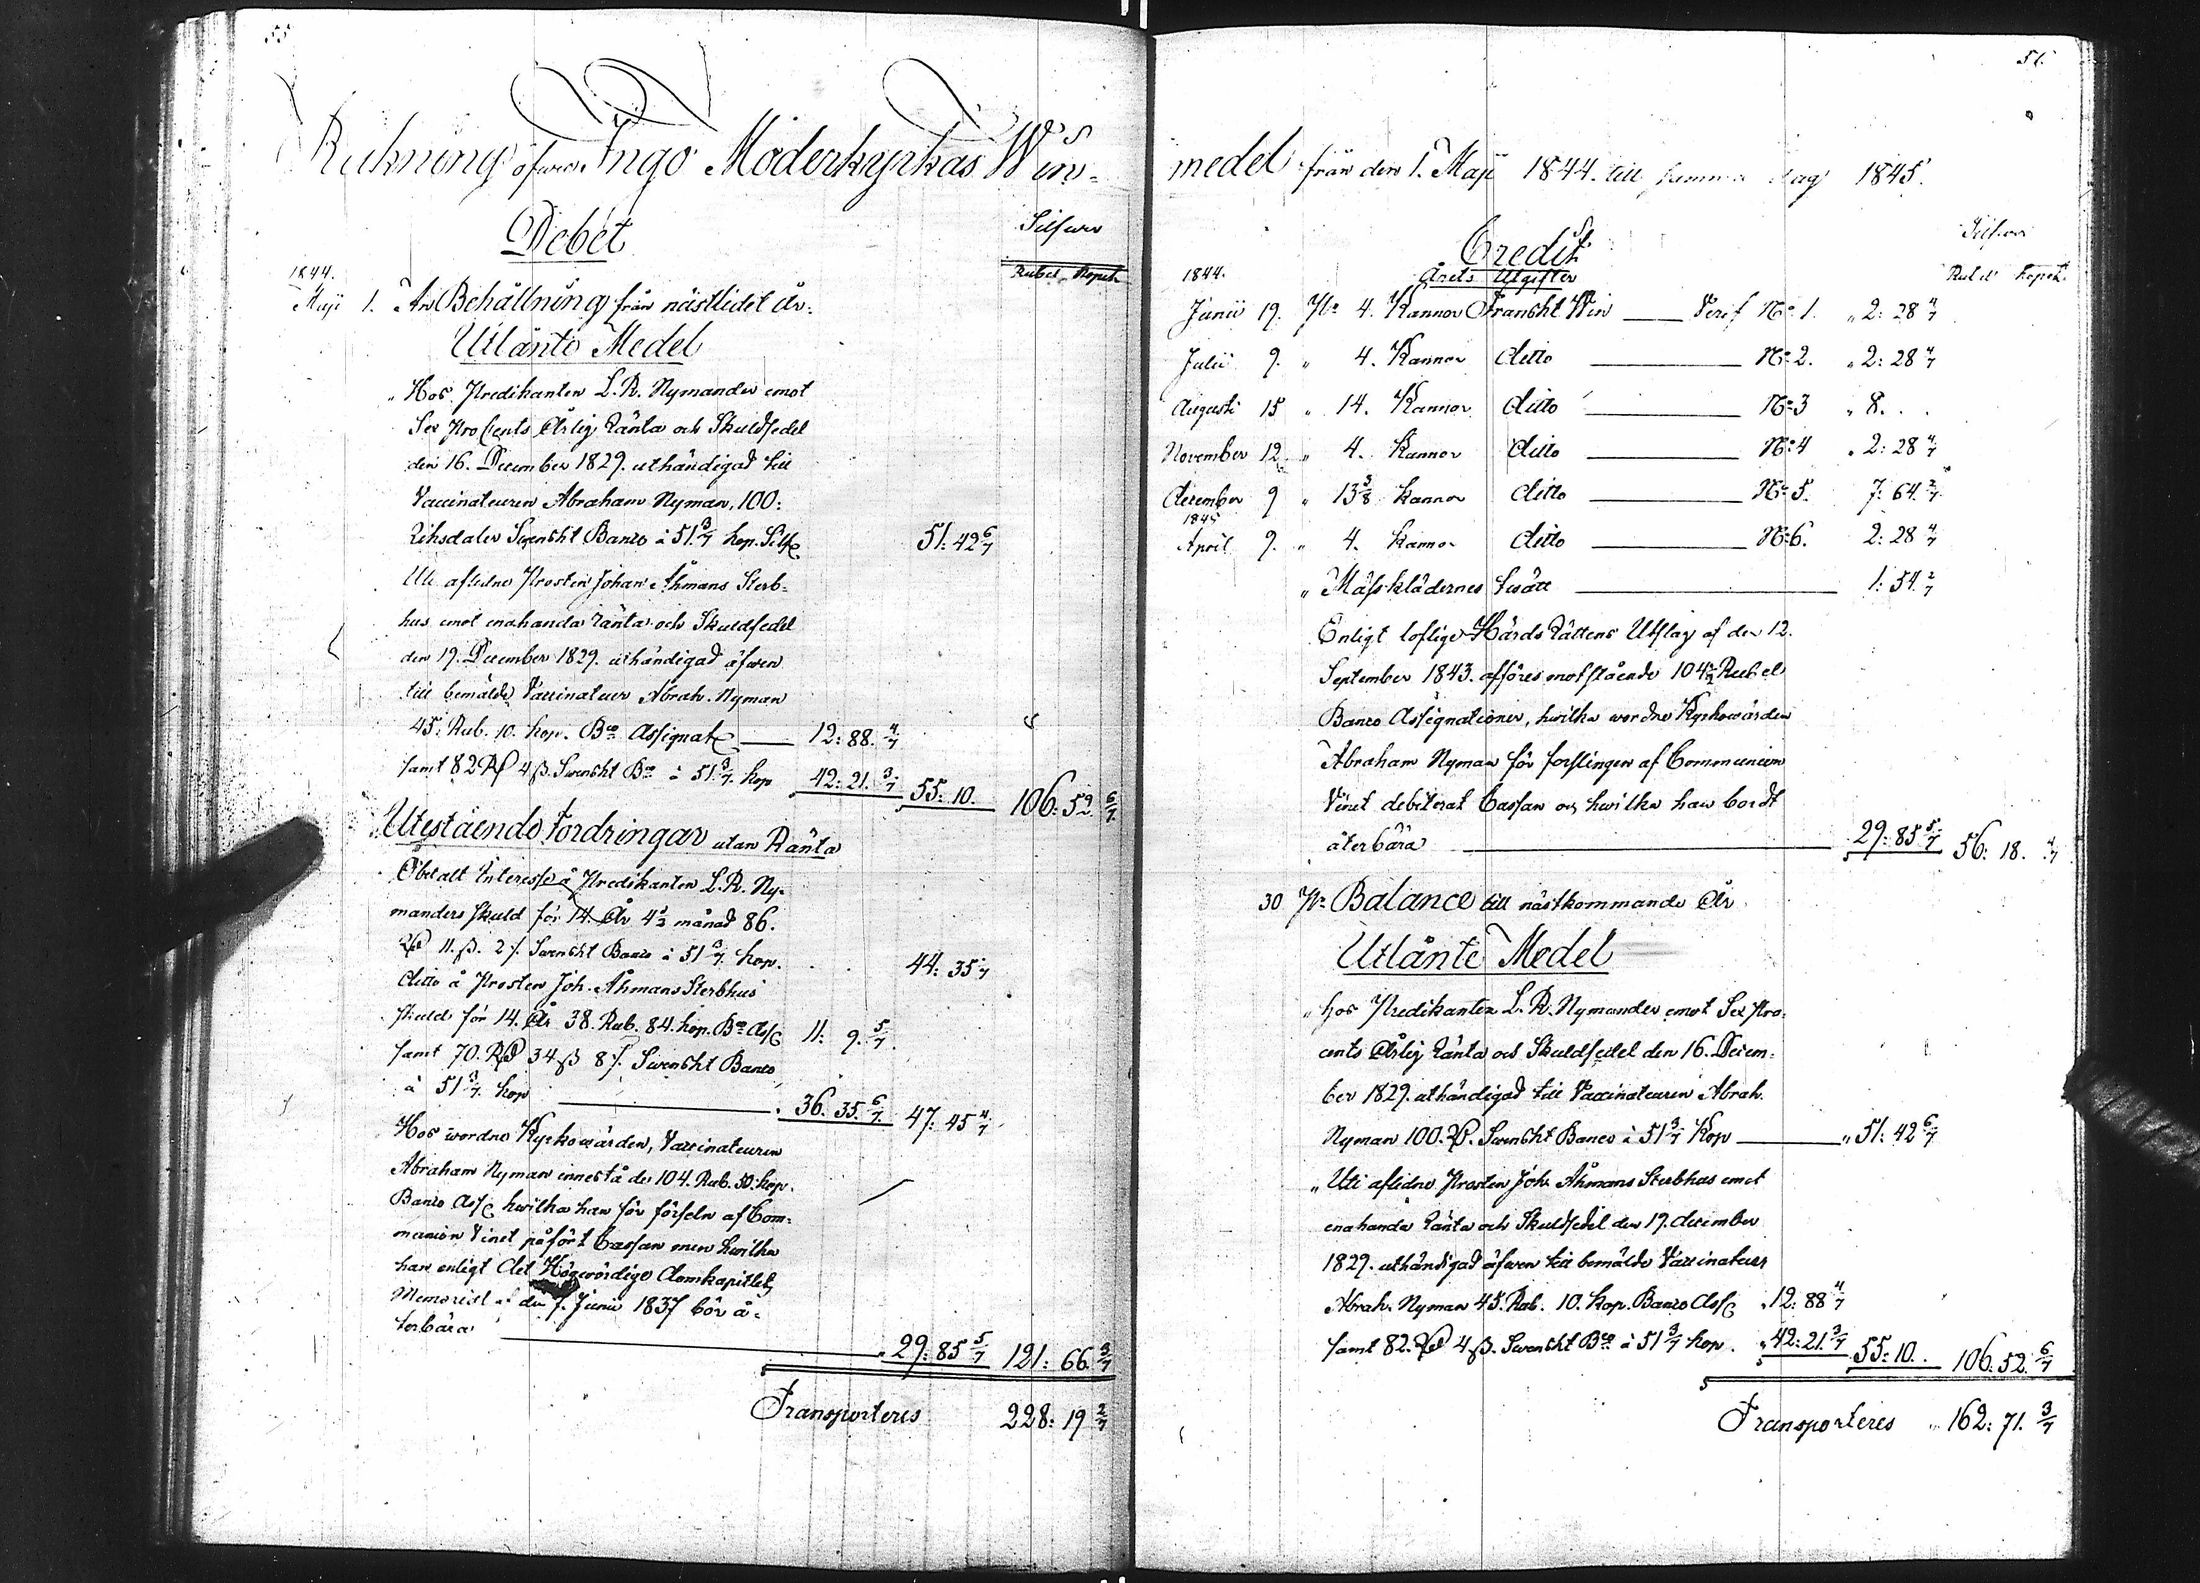 55
Räkning öfver Ingo Moderkyrkas Win-
Debet
Silfwer
Rubel Kopek
1844.
Maji 1. An Behållning från nästlidet år.
Utlånte Medel
„ Hos Predikanten L. R. Nymander emot
Sex Pro Cents Årlig Ränta och Skuldsedel
den 16. December 1829. uthändigad till
Vaccinateuren Abraham Nyman, 100:
Riksdaler Swenskt Banco à 51 3/7 kop. Silf. 51: 42 6/7
Uti aflidne Prosten Johan Åhmans Sterb-
hus emot enahanda ränta och Skuldsedel
den 19. December 1829. uthändigad äfwen
till bemälde Vaccinateur Abrah. Nyman
45. Rub. 10. kop. Bco Assignat 12: 88. 4/7
samt 82 Rd 4 ß. Swenskt Bco à 51. 3/7. kop 42: 21. 3/7 55: 10. 106: 52 6/7
Utestående Fordringar utan Ränta
Obetalt Interesse å Predikanten L. R. Ny-
manders skuld för 14. År 4 1/2 månad 86.
Rd 11. ß. 2 /. Swenskt Banco à 51 3/7. kop. 44: 35 /7
Ditto å Prosten Joh. Åhmans Sterbhus
skuld för 14. År 38. Rub. 84. kop. Bco Ass 11: 9. 5/7
samt 70. Rd 34 ß 8 /. Swenskt Banco
à 51 3/7. kop 36. 35. 6/7. 47: 45 4/7
Hos wordne Kyrkowärden, Vaccinateuren
Abraham Nyman innestå de 104. Rub. 50. kop.
Banco Ass hwilka han för förseln af Com-
munion Vinet påfört Cassan men hwilka
han enligt Det Högwördige Domkapitlets
Memorial af den 7. Junii 1837 bör å-
terbära 29: 85 5/7 121: 66. 3/7
Transporteres 228: 19 2/7
56.
medel från den 1. Maji 1844. till samma dag 1845.
Credit
Silfwer
Årets Utgifter
Rubel Kopek.
1844.
Junii 19. Pr 4. Kannor Franskt Win Verif No. 1. „ 2: 28 4/7
Julii 9. „ 4. Kannor Ditto No. 2. „ 2: 28 4/7
Augusti 15 „ 14. Kannor Ditto No. 3 „ 8. . .
November 12 „ 4. Kannor Ditto No. 4 „ 2: 28 4/7
December 9 „ 13 3/8 kannor Ditto No. 5. 7: 64. 2/7
1845
April 9. „ 4. kannor Ditto No. 6. 2: 28 4/7
„ Mässklädernes twätt 1: 54. 2/7
Enligt loflige Härads Rättens Utslag af den 12.
September 1843. afföres motstående 104 1/2 Rubel
Banco Assignationer, hwilka wordne Kyrkowärden
Abraham Nyman för forslingen af Communion
Vinet debiterat Cassan och hwilka han bordt
återbära 29: 85 5/7 56: 18. 4/7
30 Pr Balance till nästkommande År
Utlånte Medel
„ hos Predikanten L. R. Nymander emot Sex Pro-
cents Årlig Ränta och Skuldsedel den 16. Decem-
ber 1829. uthändigad till Vaccinateuren Abrah.
Nyman 100. Rd. Swenskt Banco à 51 3/7 Kop „ 51: 42 6/7
„ Uti aflidne Prosten Joh. Åhmans Sterbhus emot
enahanda Ränta och Skuldsedel den 19. december
1829. uthändigad äfwen till bemälde Vaccinateur
Abrah. Nyman 45. Rub. 10. Kop. Banco Ass „ 12: 88 4/7
samt 82. Rd 4 ß. Swenskt Bco à 51 3/7 kop. „ 42: 21. 3/7 55: 10. . 106: 52. 6/7
Transporteres „ 162: 71. 3/7